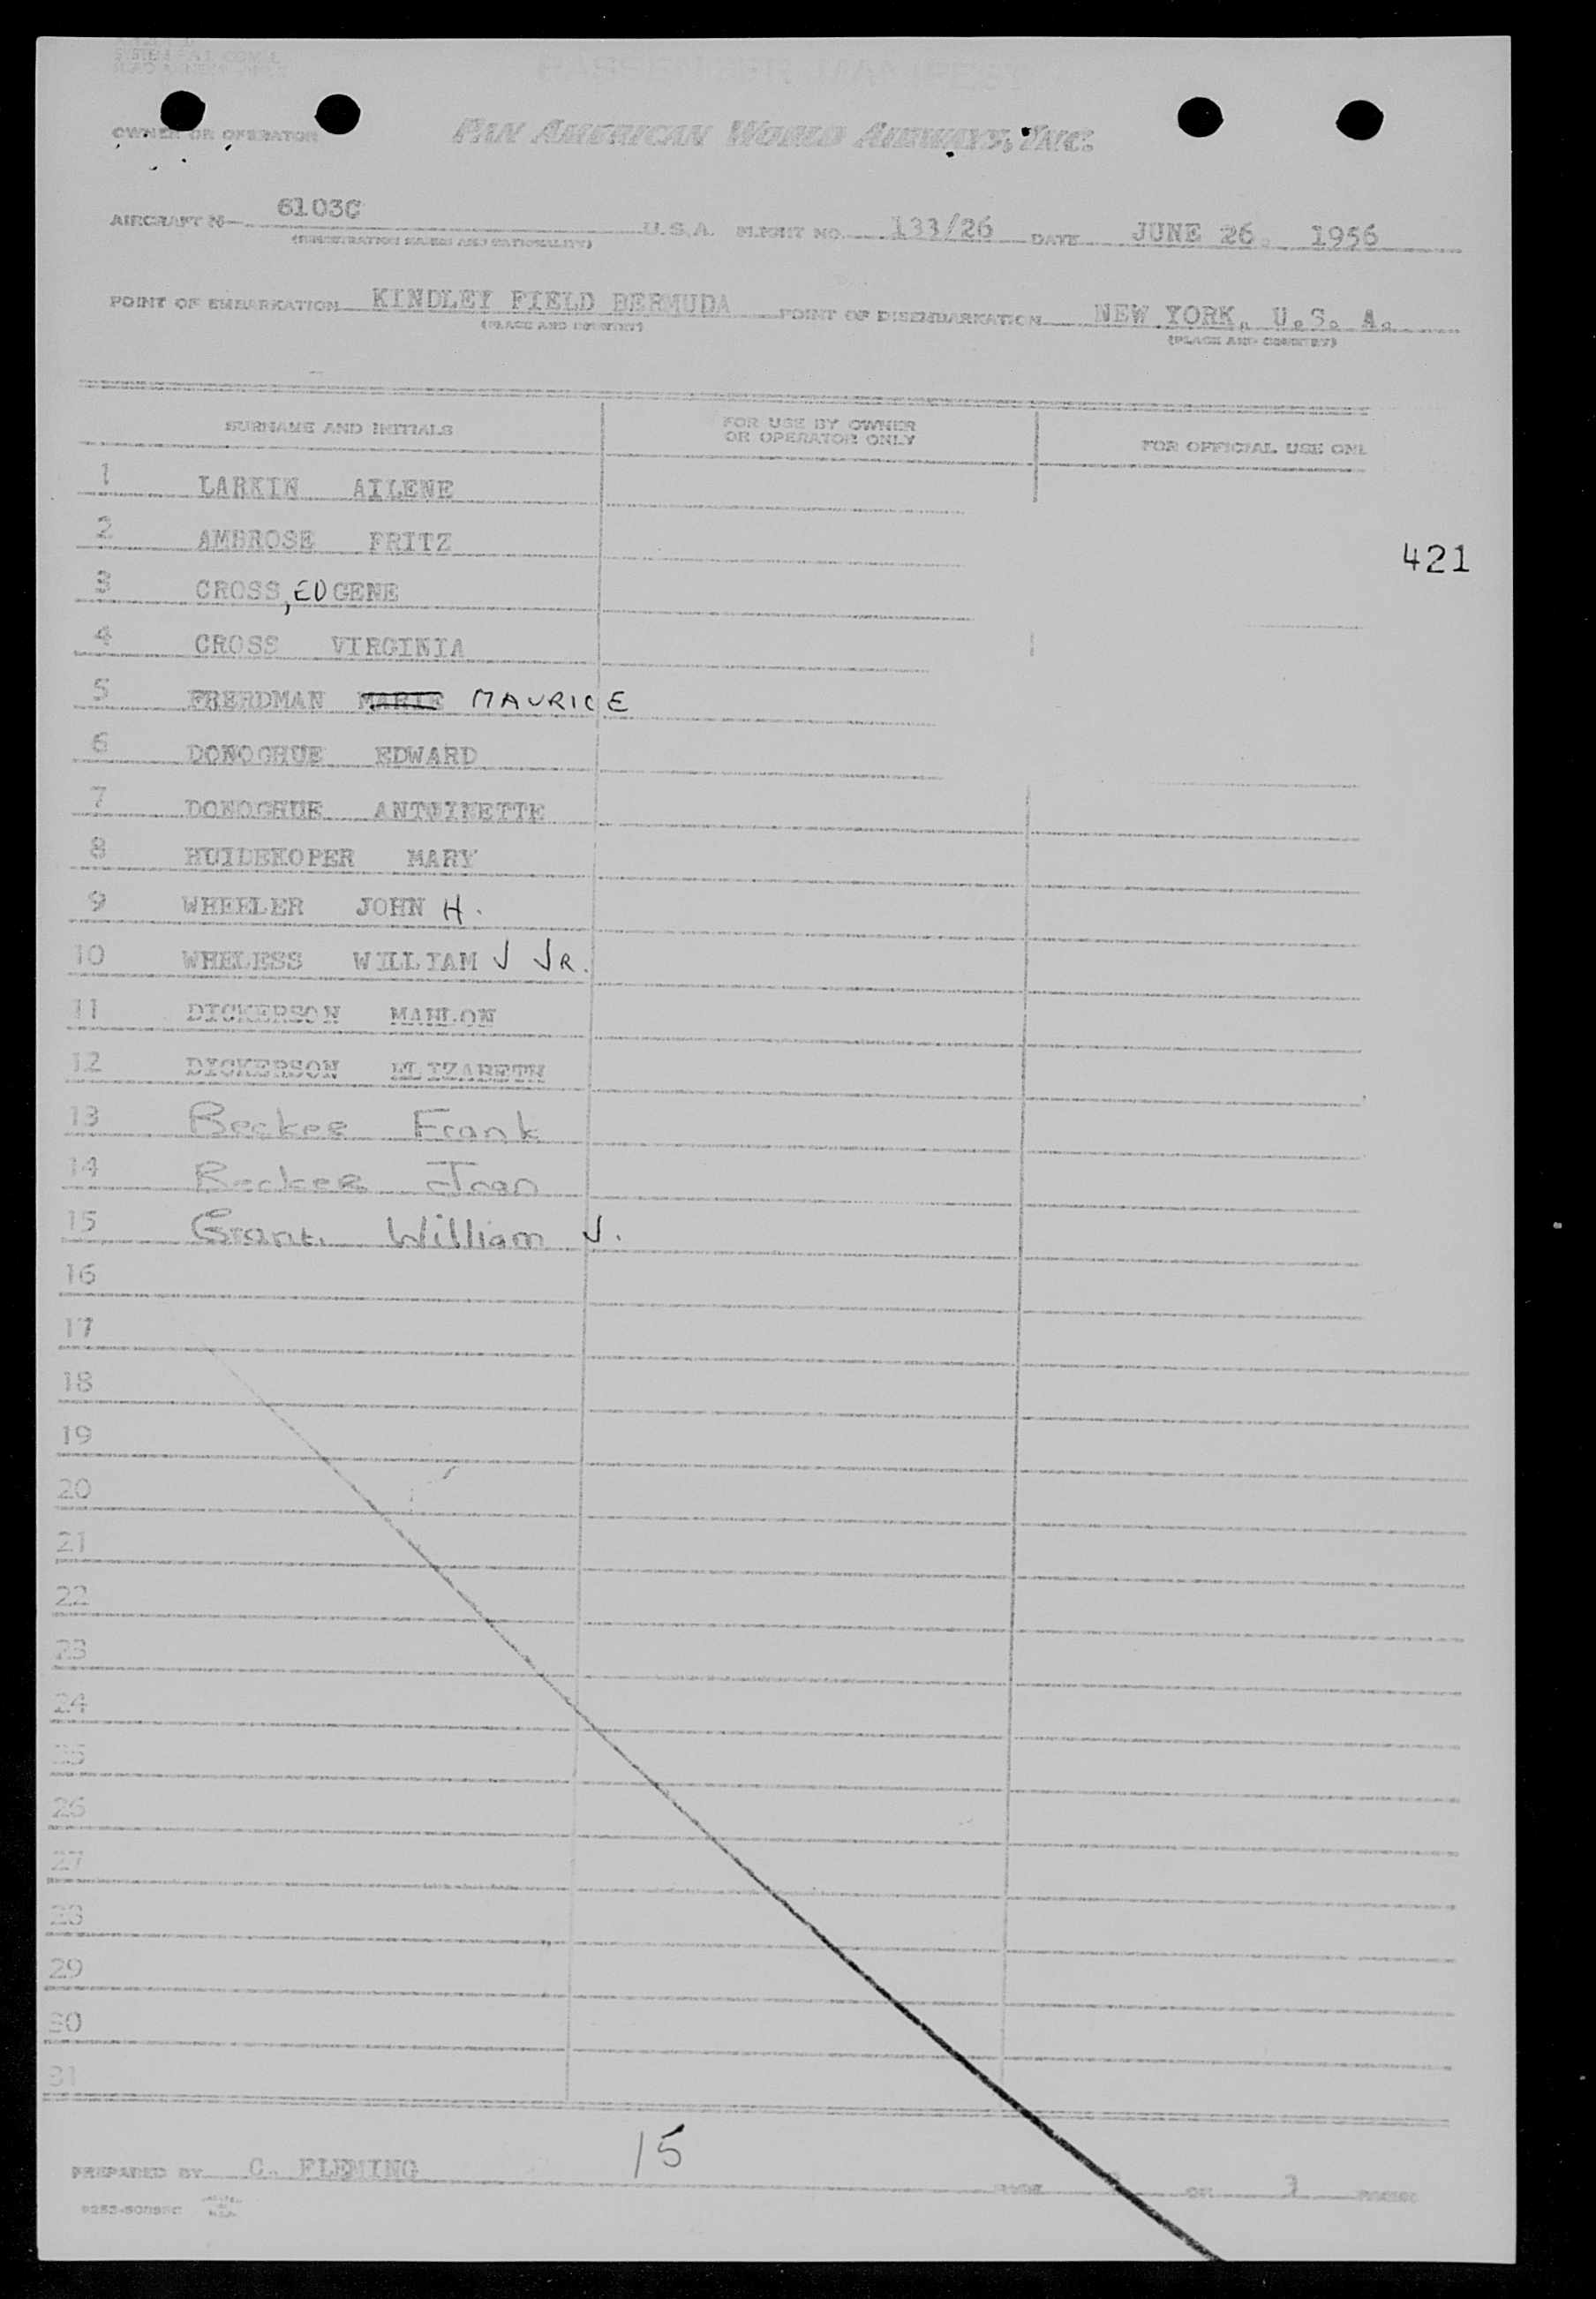 OWNER OR OPERATOR PAN AMERICAN WORLD AIRWAYS, INC.
AIRCRAFT N— 6103C U.S.A. FLIGHT NO. 133/26 DATE JUNE 26, 1956
(REGISTRATION MARKS AND NATIONALITY)
POINT OF EMBARKATION KINDLEY FIELD BERMUDA POINT OF DISEMBARKATION NEW YORK, U.S. A.
(PLACE AND COUNTRY) (PLACE AND COUNTRY)
SURNAME AND INITIALS FOR USE BY OWNER OR OPERATOR ONLY FOR OFFICIAL USE ONL
1 LARKIN AILENE
2 AMBROSE FRITZ
421
3 CROSS, EUGENE
4 CROSS VIRGINIA
5 FRERDMAN MARIE MAURICE
6 DONOGHUE EDWARD
7 DONOGHUE ANTOINETTE
8 HUIDEKOPER MARY
9 WHEELER JOHN H.
10 WHELESS WILLIAM J JR.
11 DICKERSON MAHLON
12 DICKERSON ELIZABETH
13 Becker Frank
14 Becker Joan
15 Grant. William J.
16
17
18
19
20
21
22
23
24
25
26
27
28
29
30
31
PREPARED BY C. FLEMING 15 PAGE OF PAGES